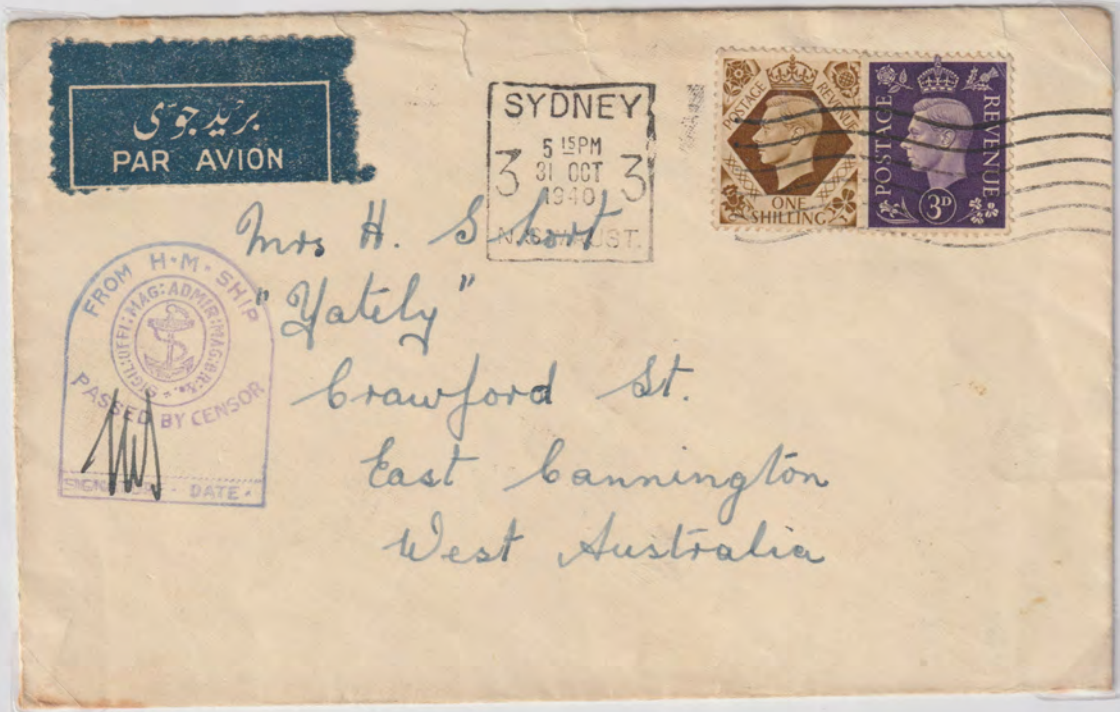 بريد جوّي
PAR AVION
SYDNEY
5 15PM
3 31 OCT 3
1940
N.S.W. AUST.
POSTAGE REVENUE
ONE
SHILLING
POSTAGE REVENUE
3D
Mrs H. Short
"Yately"
Crawford St.
East Cannington
West Australia
FROM H·M·SHIP
SIGIL:OFFI:MAG:ADMIR:MAG:BR:&c.
PASSED BY CENSOR
SIGNATURE · DATE ·